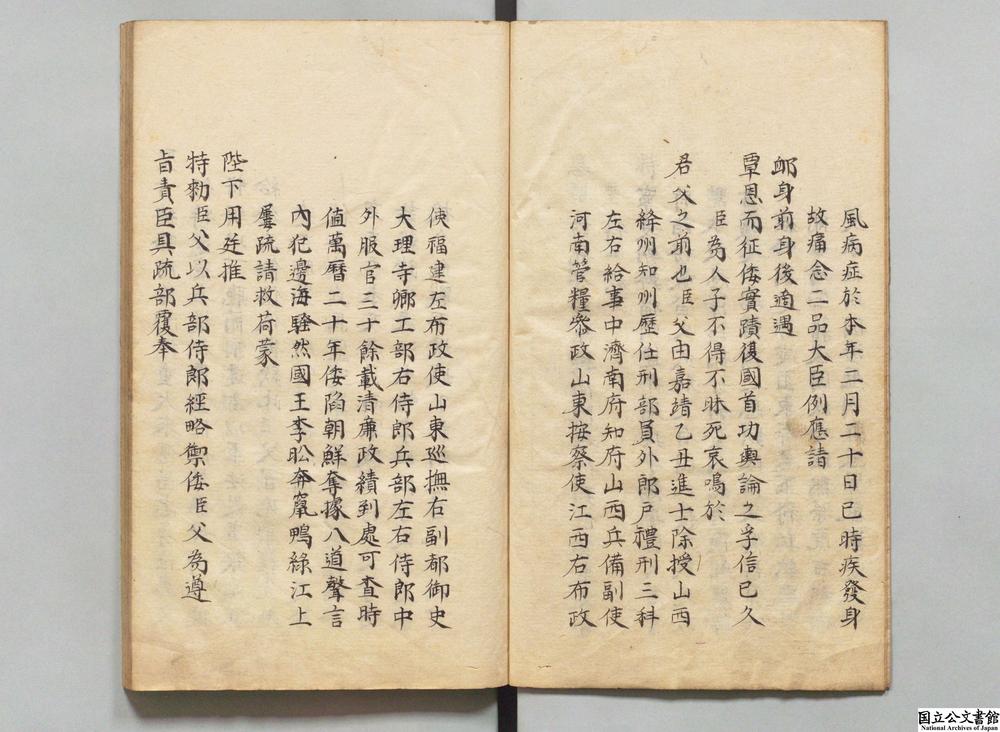 風病症於本年二月二十日巳時疾發身
故痛念二品大臣例應請
卹身前身後適遇
覃恩而征倭實蹟復國首功輿論之孚信已久
臣為人子不得不昧死哀鳴於
君父之前也臣父由嘉靖乙丑進士除授山西
絳州知州歷任刑部員外郎戶禮刑三科
左右給事中濟南府知府山西兵備副使
河南管糧參政山東按察使江西右布政
使福建左布政使山東巡撫右副都御史
大理寺卿工部右侍郎兵部左右侍郎中
外服官三十餘載清廉政績到處可查時
值萬曆二十年倭陷朝鮮奪據八道聲言
內犯邊海騷然國王李昖奔竄鴨綠江上
屢疏請救荷蒙
陛下用廷推
特勅臣父以兵部侍郎經略禦倭臣父為遵
旨責臣具疏部覆奉
国立公文書館
National Archives of Japan